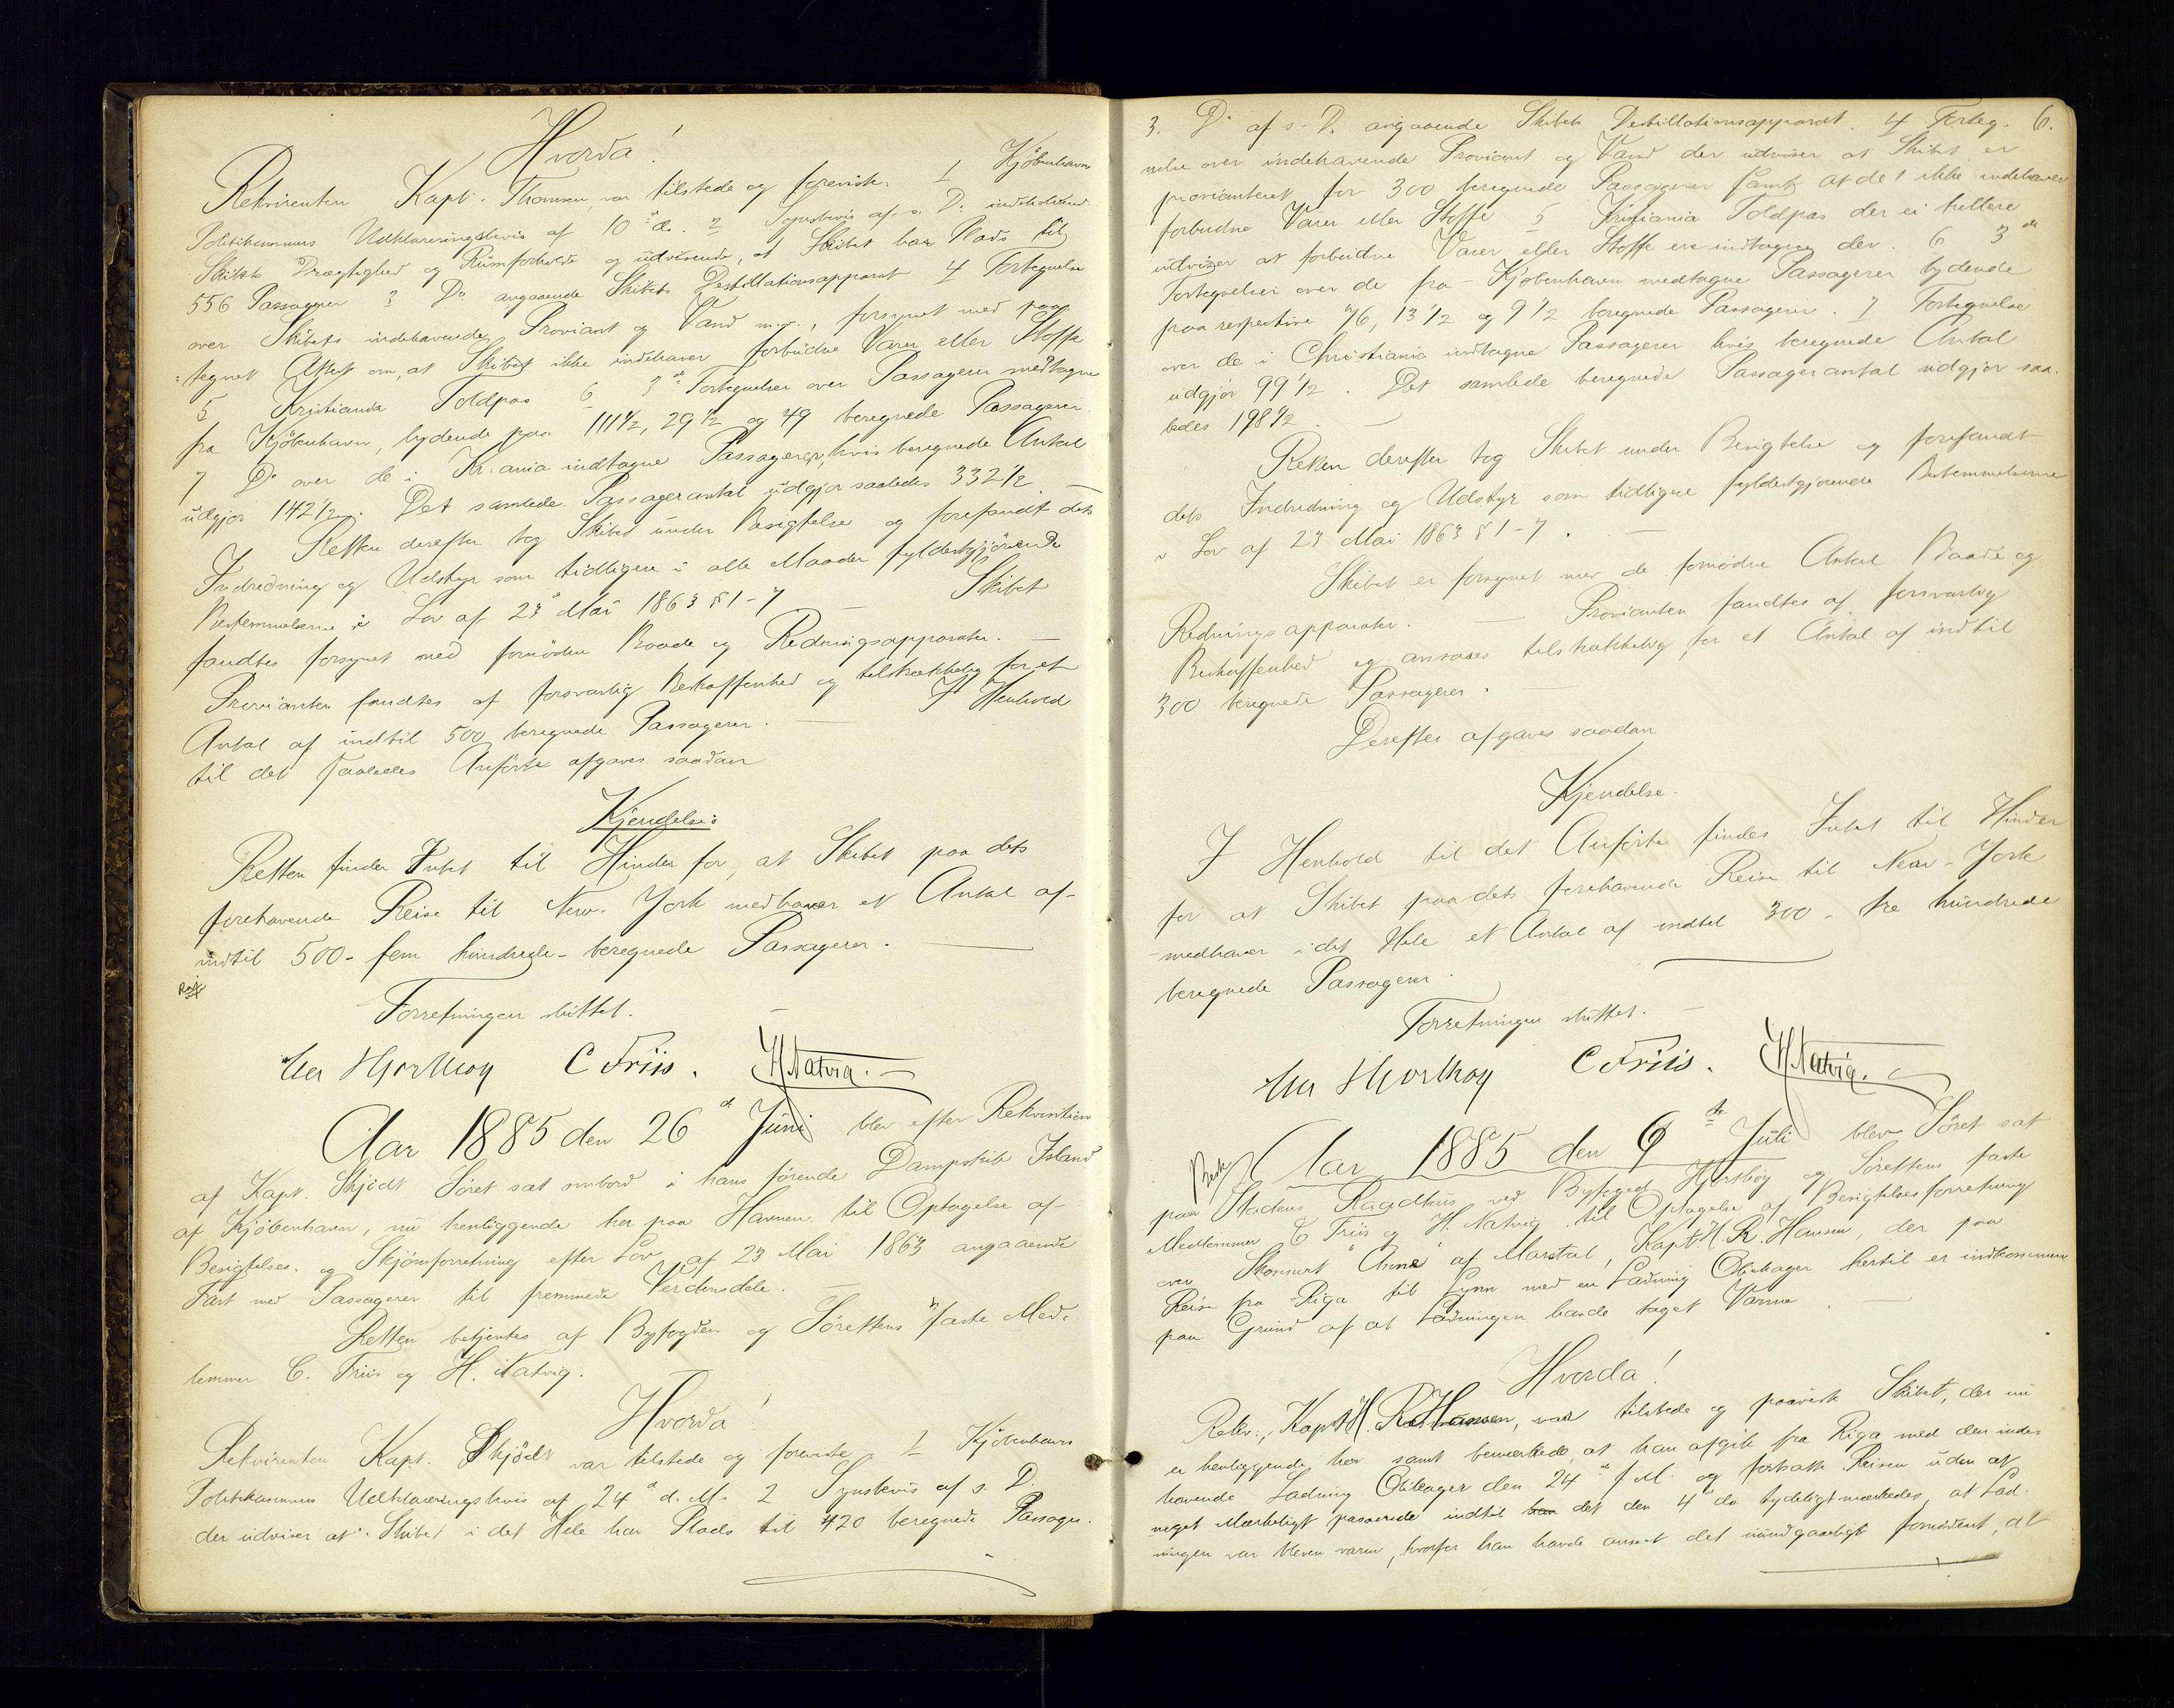 Hvorda!
Rekvirenten Kapt. Thomsen var tilstede og foreviste: 1 Kjöbenhavns
Politikammers Udklareringsbevis af 10de ds. 2 Synsbevis af s. D. indeholdende
Skibets Drægtighed og Rümforholde og udvisende, at Skibet har Plads til
556 Passagerer 3 Do angaaende Skibets Destillationsapparat 4 Fortegnelse
over Skibets indehavende Proviant og Vand m.v., forsynet med paa-
tegnet Attest om, at Skibet ikke indehaver forbüdne Varer eller Stoffe
5 Kristiania Toldpas 6 3de Fortegnelser over Passagerer medtagne
fra Kjöbenhavn, lydende paa 111½, 29½ og 49 beregnede Passagerer.
7 Do over de i Kr:ania indtagne Passagerer, hvis beregnede Antal
üdgjör 142½. Det samlede Passagerantal üdgjör saaledes 332½. —
Retten derefter tog Skibet ünder Besigtelse og forefandt dets
Indredning og Udstyr som tidligere i alle Maader fyldestgjörende
Bestemmelserne i Lov af 23de Mai 1863 § 1-7 — Skibet
fandtes forsynet med fornödne Baade og Redningsapparater. —
Provianten fandtes af forsvarlig Beskaffenhed og tilstrækkelig for et
Antal af indtil 500 beregnede Passagerer. — I Henhold
til det saaledes Anförte afgaves saadan
Kjendelse:
Retten finder Intet til Hinder for, at Skibet paa dets
forehavende Reise til New-York medhaver et Antal af
indtil 500 - fem hündrede - beregnede Passagerer. —
Forretningen slüttet. —
Hjorthoy C Friis. H Natvig. —
Aar 1885 den 26de Jüni blev efter Rekvisition
af Kapt. Skjödt Söret sat ombord i hans förende Dampskib Island
af Kjöbenhavn, nü henliggende her paa Havnen til Optagelse af
Besigtelses- og Skjönsforretning efter Lov af 23 Mai 1863 angaaende
Fart med Passagerer til fremmede Verdensdele. —
Retten betjentes af Byfogden og Sörettens faste Med-
lemmer C. Friis og H. Natvig.
Hvorda!
Rekvirenten Kapt. Skjödt var tilstede og foreviste 1 Kjöbenhavns
Politikammers Udklareringsbevis af 24de d. M. 2 Synsbevis af s. D.
der üdviser at Skibet i det Hele har Plads til 420 beregnede Passager.
6.
3. Do af s. D. angaaende Skibets Destillationsapparat. 4 Forteg-
nelse over indehavende Proviant og Vand der üdviser at Skibet er
provianteret for 300 beregnede Passagerer samt at det ikke indehaver
forbudne Varer eller Stoffe 5 Kristiania Toldpas der ei hellere
udviser at forbudne Varer eller Stoffe ere indtagne der. 6 3de
Fortegnelser over de fra Kjöbenhavn medtagne Passagerer lydende
paa respective 76, 13½ og 9½ beregnede Passagerer. 7 Fortegnelse
over de i Christiania indtagne Passagerer hvis beregnede Antal
udgjör 99½. Det samlede beregnede Passagerantal udgjör saa-
ledes 198½. —
Retten derefter tog Skibet under Besigtelse og forefandt
dets Indredning og Udstyr som tidligere fyldestgjörende Bestemmelserne
i Lov af 23 Mai 1863 § 1-7. —
Skibet er forsynet med de fornödne Antal Baade og
Redningsapparater. — Provianten fandtes af forsvarlig
Beskaffenhed og ansaaes tilstrækkelig for et Antal af indtil
300 beregnede Passagerer. —
Derefter afgaves saadan
Kjendelse.
I Henhold til det Anförte findes Intet til Hinder
for at Skibet paa dets forehavende Reise til New-York
medhaver i det Hele et Antal af indtil 300 - tre hündrede
beregnede Passagerer.
Forretningen slüttet. —
Hjorthoy C Friis. H Natvig. —
Aar 1885 den 9de Jüli blev Söret sat
paa Stadens Raadhüs ved Byfoged Hjorthöy og Sörettens faste
Medlemmer C Friis og H. Natvig til Optagelse af Besigtelsesforretning
over Skonnert "Anna" af Marstal, Kapt. H. R. Hansen, der paa
Reise fra Riga til Lynn med en Ladning Oliekager hertil er indkommen
paa Gründ af at Ladningen havde taget Varme. —
Hvorda!
Rekv., Kapt. H. R. Hansen, var tilstede og paaviste Skibet, der nü
er henliggende her samt bemærkede, at han afgik fra Riga med den inde-
havende Ladning Oliekager den 24de f. M. og fortsatte Reisen üden at
noget Mærkeligt passerede indtil det den 4de ds tydeligt mærkedes, at Lad-
ningen var bleven varm, hvorfor han havde anseet det üündgaaeligt fornödent, at